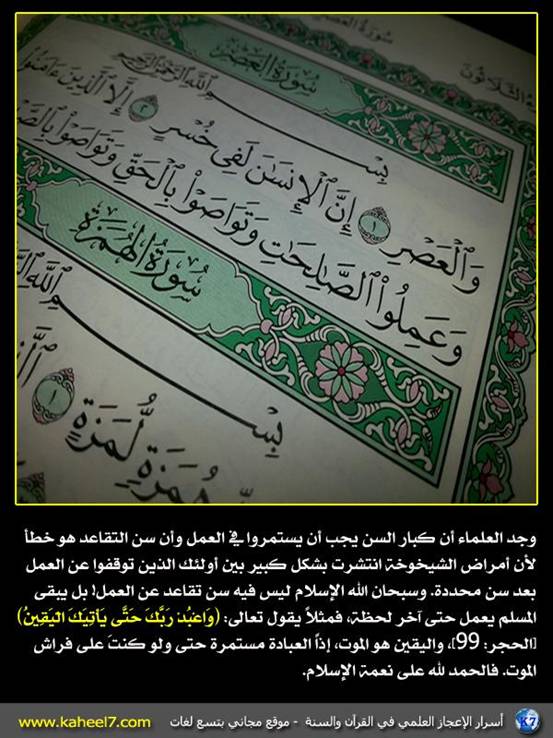 سُورَةُ العَصْرِ
بِسْمِ ٱللَّهِ ٱلرَّحْمَٰنِ ٱلرَّحِيمِ
وَٱلْعَصْرِ ١ إِنَّ ٱلْإِنسَٰنَ لَفِى خُسْرٍ ٢ إِلَّا ٱلَّذِينَ ءَامَنُوا۟
وَعَمِلُوا۟ ٱلصَّٰلِحَٰتِ وَتَوَاصَوْا۟ بِٱلْحَقِّ وَتَوَاصَوْا۟
سُورَةُ الهُمَزَةِ
بِسْمِ ٱللَّهِ
هُمَزَةٍ لُّمَزَةٍ ١
وجد العلماء أن كبار السن يجب أن يستمروا في العمل وأن سن التقاعد هو خطأ
لأن أمراض الشيخوخة انتشرت بشكل كبير بين أولئك الذين توقفوا عن العمل
بعد سن محددة. وسبحان الله الإسلام ليس فيه سن تقاعد عن العمل! بل يبقى
المسلم يعمل حتى آخر لحظة، فمثلاً يقول تعالى: (وَاعْبُدْ رَبَّكَ حَتَّى يَأْتِيَكَ الْيَقِينُ)
[الحجر: 99]، واليقين هو الموت، إذاً العبادة مستمرة حتى ولو كنتَ على فراش
الموت. فالحمد لله على نعمة الإسلام.
أسرار الإعجاز العلمي في القرآن والسنة - موقع مجاني بتسع لغات www.kaheel7.com
K7